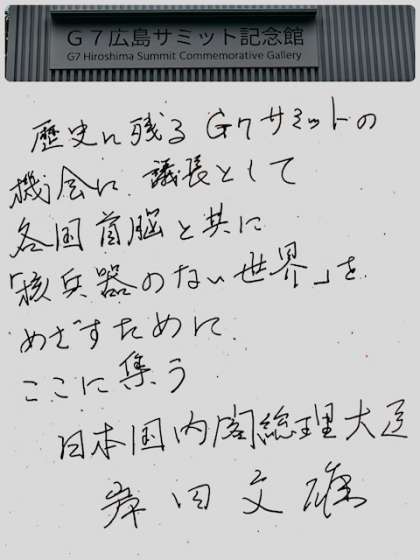 G7広島サミット記念館
G7 Hiroshima Summit Commemorative Gallery
歴史に残るG7サミットの
機会に議長として
各国首脳と共に
「核兵器のない世界」を
めざすために
ここに集う
日本国内閣総理大臣
岸田文雄